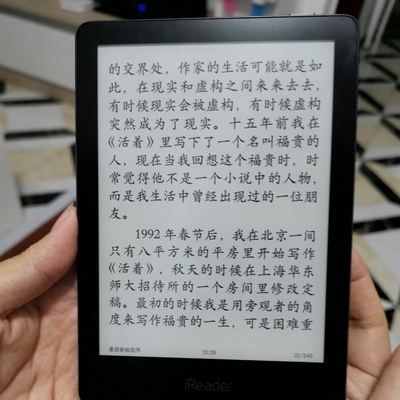 的交界处，作家的生活可能就是如
此，在现实和虚构之间来来去去，
有时候现实会被虚构，有时候虚构
突然成为了现实。十五年前我在
《活着》里写下了一个名叫福贵的
人，现在当我回想这个福贵时，时
常觉得他不是一个小说中的人物，
而是我生活中曾经出现过的一位朋
友。
1992 年春节后，我在北京一间
只有八平方米的平房里开始写作
《活着》，秋天的时候在上海华东
师大招待所的一个房间里修改定
稿。最初的时候我是用旁观者的角
度来写作福贵的一生，可是困难重
麦田新版自序 20:28 32/546
iReader